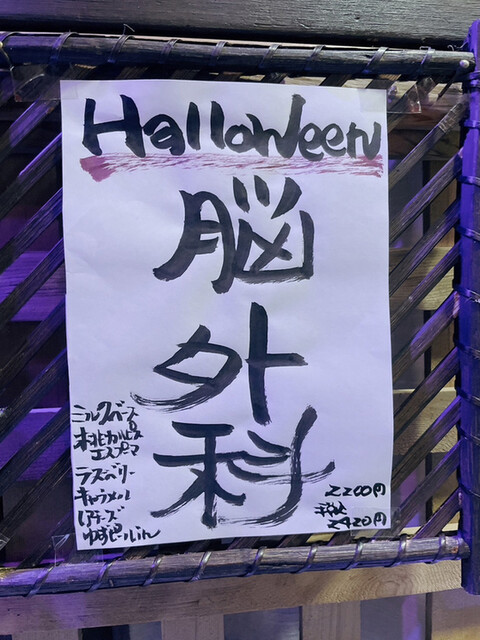 Halloween
脳
外
科
ミルクベース
桃カルピス
エスプーマ
ラズベリー
キャラメル
レアチーズ
ゆずピールin
2200円
税込
2420円